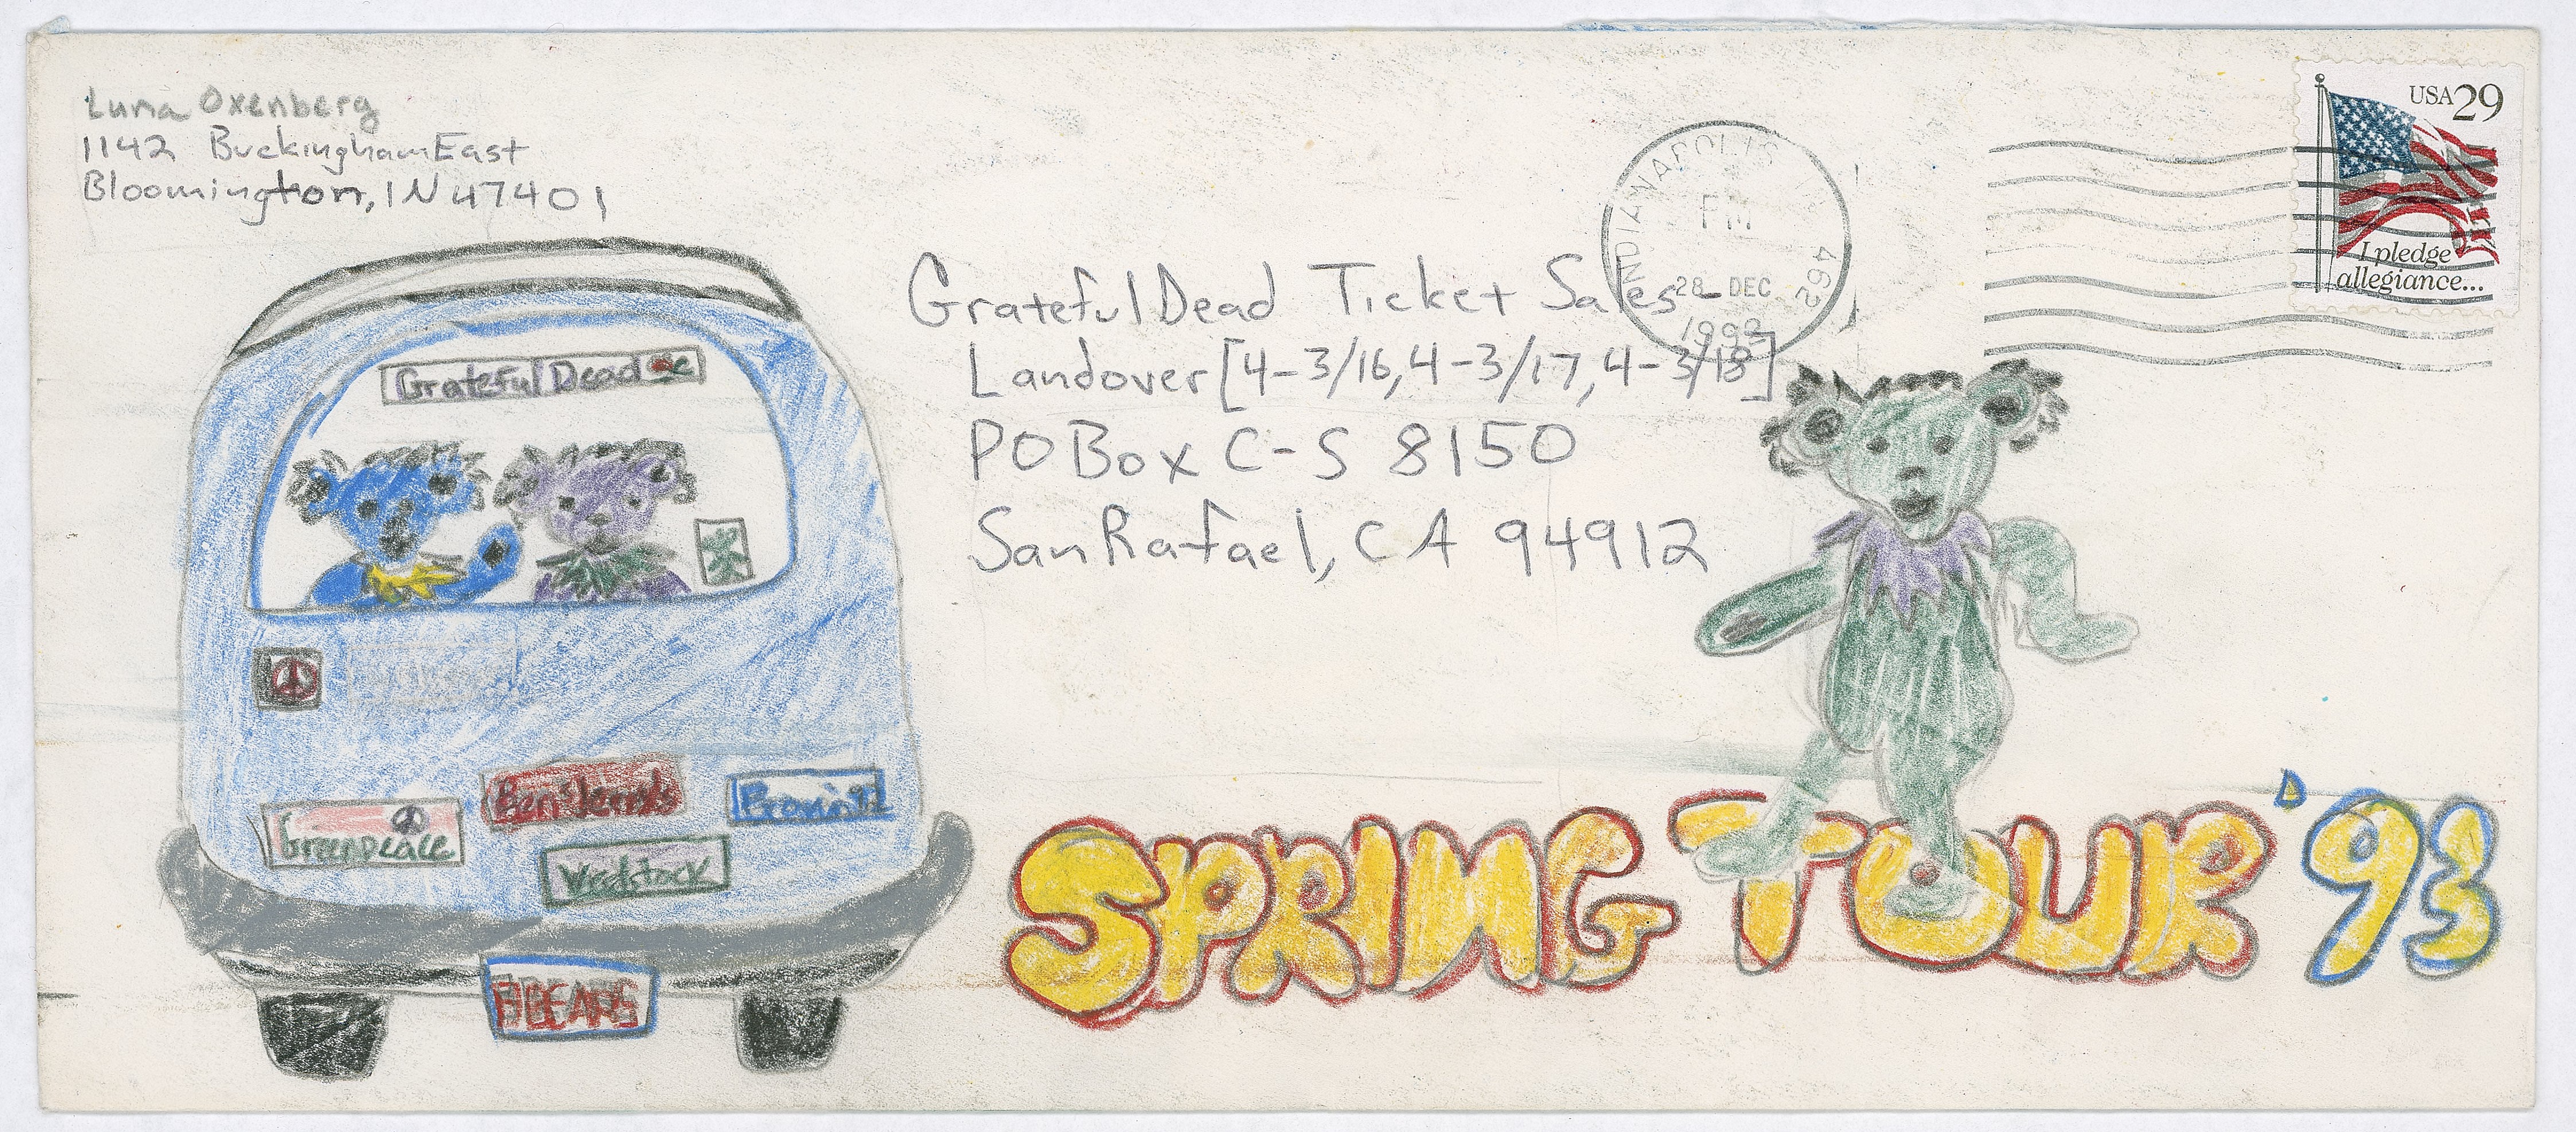 Luna Oxenberg
1142 Buckingham East
Bloomington, IN 47401
USA 29
I pledge
allegiance...
INDIANAPOLIS IN 462
PM
28 DEC
1992
Grateful Dead Ticket Sales
Landover [4-3/16, 4-3/17, 4-3/18]
PO Box C-S 8150
San Rafael, CA 94912
Grateful Dead
Greenpeace
Ben & Jerry's
Brown 92
Woodstock
BEARS
SPRING TOUR '93